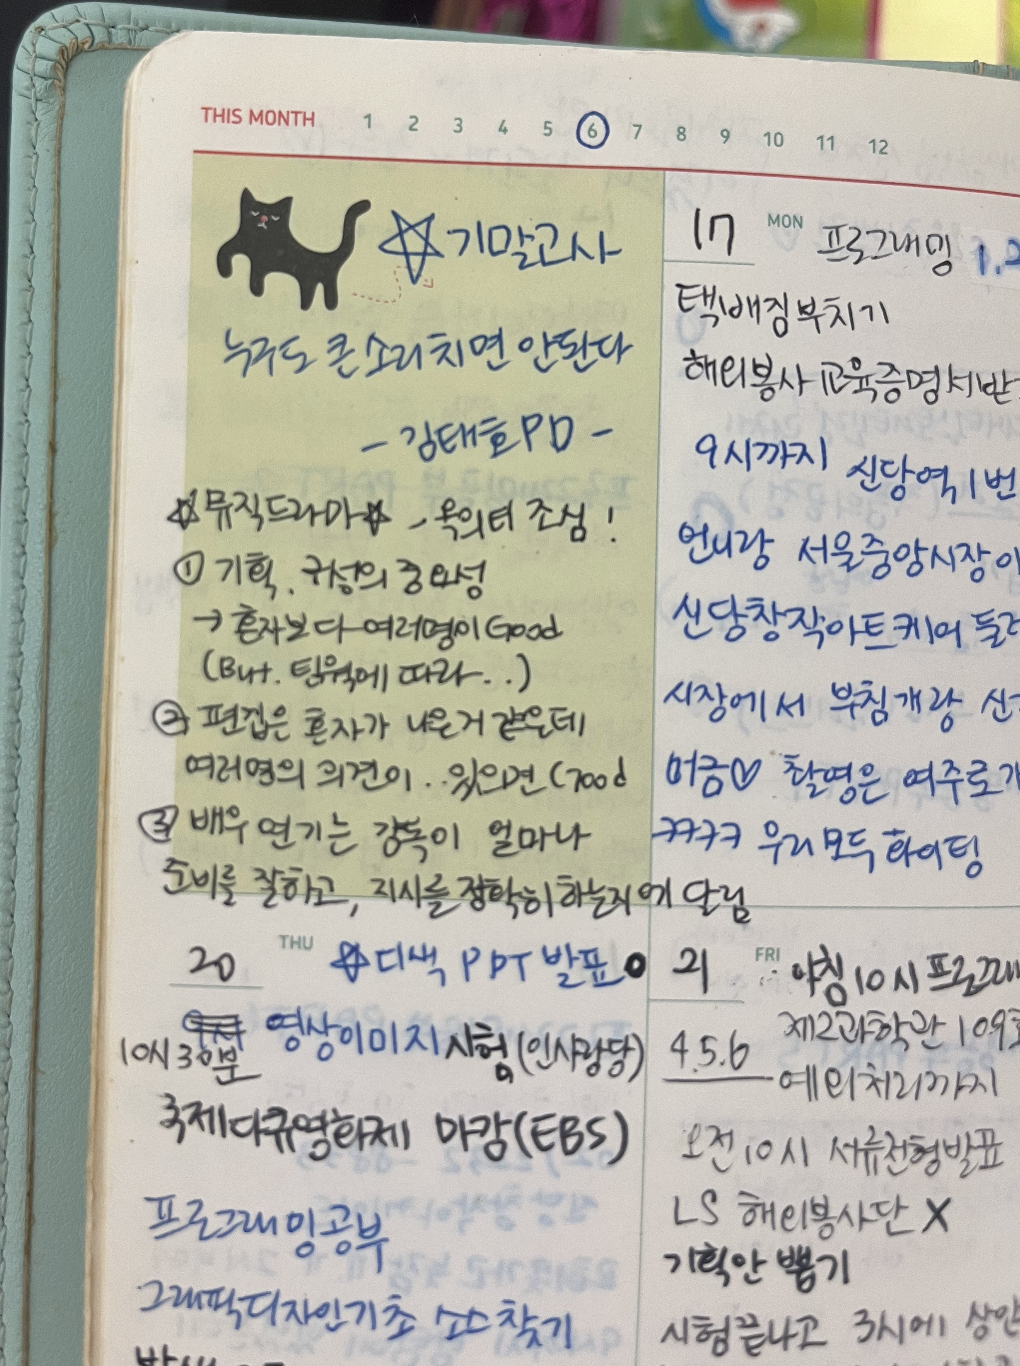 THIS MONTH 1 2 3 4 5 6 7 8 9 10 11 12
기말고사
누구도 큰소리치면 안된다
- 김태호PD -
뮤직드라마 - 옥의티 조심!
① 기획. 구성의 중요성
→ 혼자보다 여러명이 Good
(But. 팀웍에 따라...)
② 편집은 혼자가 나은거 같은데
여러명의 의견이.. 있으면 Good
③ 배우 연기는 감독이 얼마나
준비를 잘하고, 지시를 정확히하는지에 달림
17 MON 프로그래밍 1.2
택배짐부치기
해외봉사 교육증명서받
9시까지 신당역 1번
언니랑 서울중앙시장
신당창작아트케어 들러
시장에서 부침개랑
머금♡ 촬영은 여주로
ㅋㅋㅋㅋ 우리모두 화이팅
20 THU 디색 PPT 발표
영상이미지 시험(인사랑당)
10시30분
국제다큐영화제 마감(EBS)
프로그래밍공부
그래픽디자인기초 소스찾기
21 FRI 아침 10시 프로그래
4.5.6 제2과학관 109호
예외처리까지
오전 10시 서류전형발표
LS 해외봉사단 X
기획안 뽑기
시험끝나고 3시에